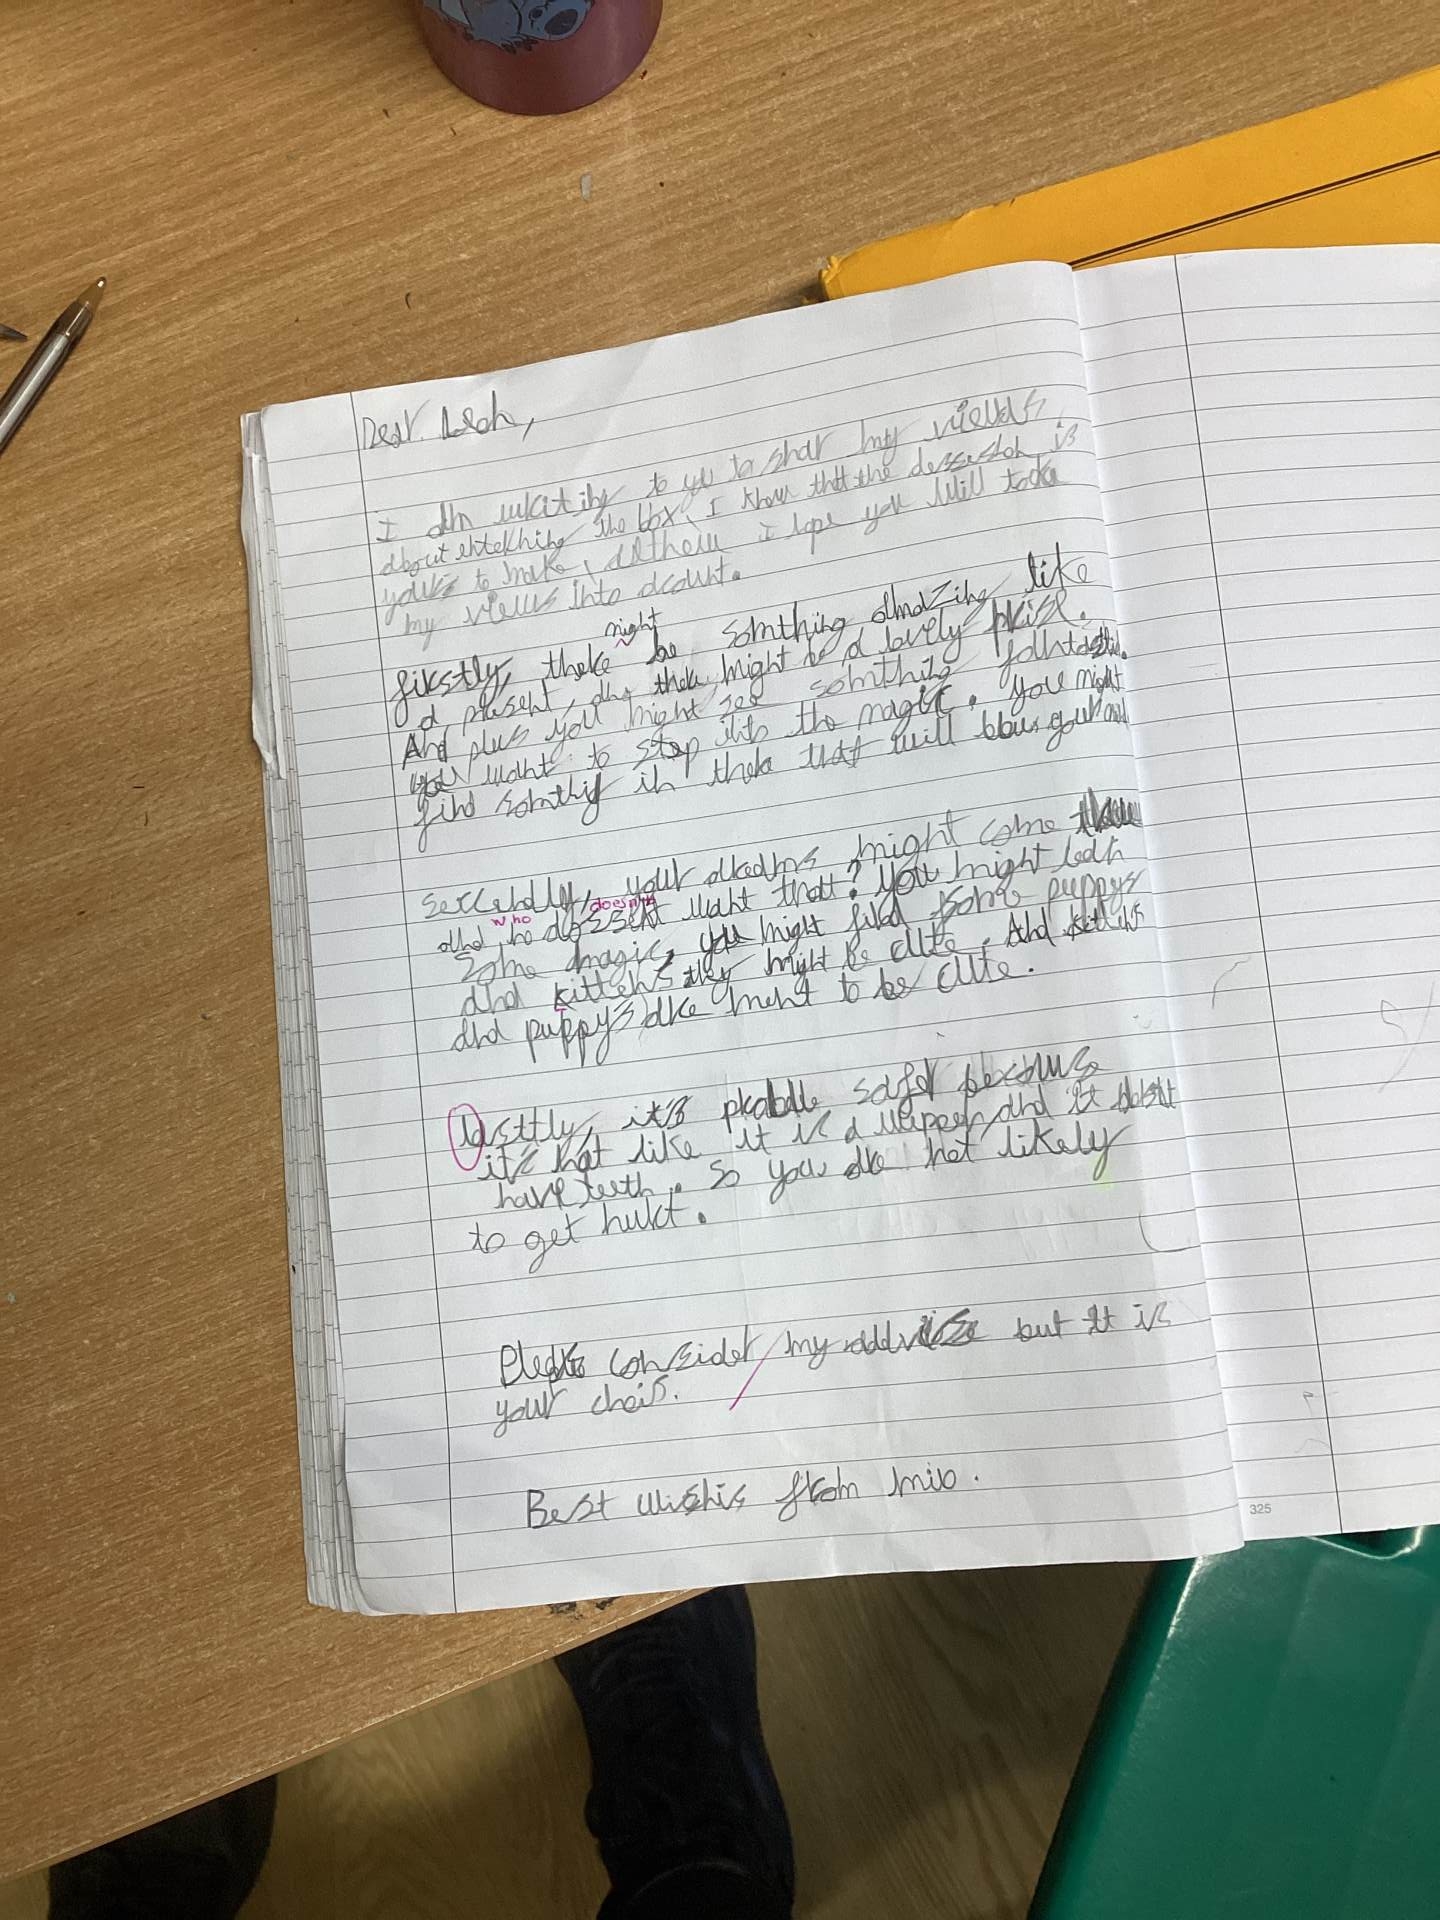 Dear Leoh,
I am writing to you to shar my views
about entering the box, I know that the dessesion is
yours to make, althou I hope you will take
my views into acount.
night
firstly, there be somthing amazing like
a present, and there might be a lovely prise.
And plus you might see somthing fantastic.
you want to step into the magic. you might
find somthig in there that will blow your mind
seccondly, your dreams might come
who doesn't
and ho dosent want that? you might lean
some magic, you might find some puppys
and kittens they might be cute. And kittens
and puppys are ment to be cute.
lasttly, it's prabale safe becous
it's not like it is a and it dosent
have teeth. so you are not likely
to get hurt.
Please consider my addvise but it is
your chois.
Best wishis from mio.
325